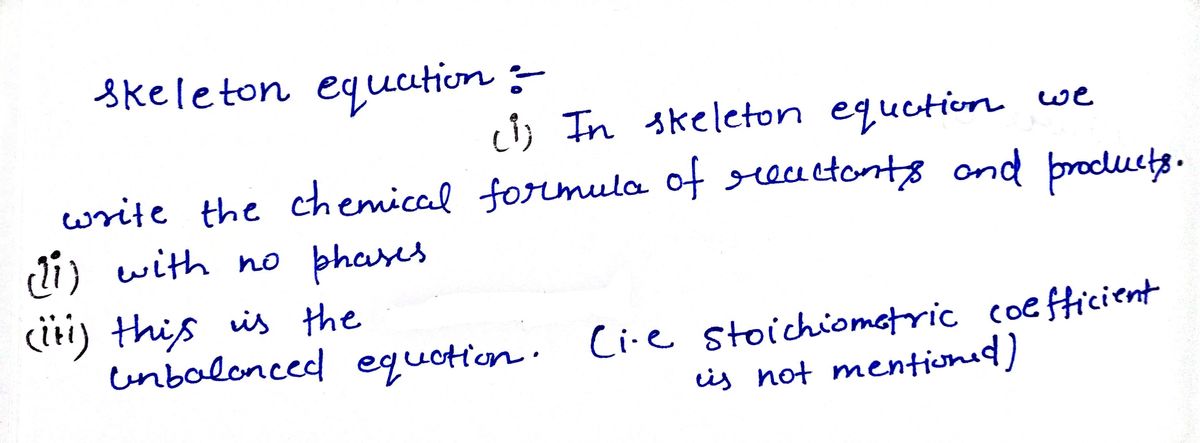 skeleton equation :-
(i) In skeleton equation we
write the chemical formula of reactants and products.
(ii) with no phases
(iii) this is the
unbalanced equation. (i.e stoichiometric coefficient
is not mentioned)